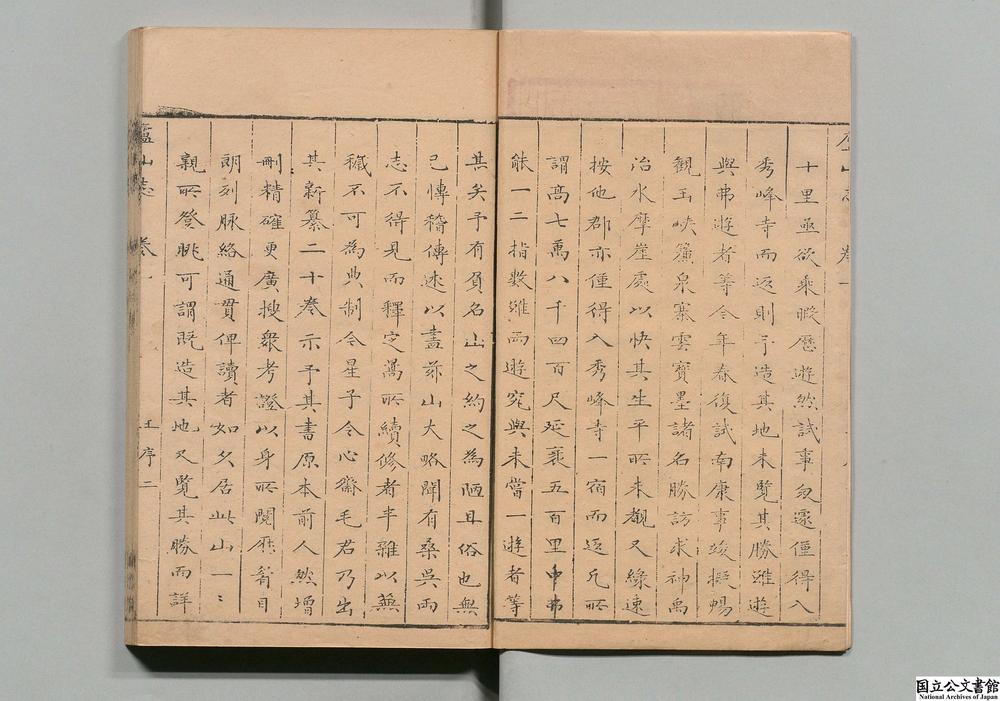 十里亟欲乘暇歷遊然試事匆遽僅得入
秀峰寺而返則予造其地未覽其勝雖遊
與弗遊者等今年春復試南康事竣擬暢
觀玉峽簾泉寨雲寶墨諸名勝訪求神禹
治水摩崖處以快其生平所未覩又緣速
按他郡亦僅得入秀峰寺一宿而返凡所
謂高七萬八千四百尺延袤五百里中弗
能一二指數雖兩遊究與未嘗一遊者等
其矣予有負名山之約之為陋且俗也無
已博稽傳述以盡茲山大略聞有桑吳兩
志不得見而釋定暠所續修者半雜以蕪
穢不可為典制今星子令心齋毛君乃出
其新纂二十卷示予其書原本前人然增
刪精確更廣搜衆考證以身所閱歷觜目
朗刻脉絡通貫俾讀者如久居此山一〻
親所登眺可謂既造其地又覽其勝而詳
廬山志 卷 王序 二
国立公文書館
National Archives of Japan